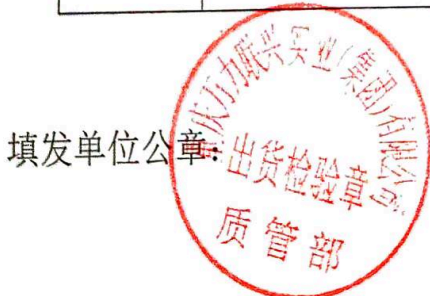 填发单位公章：
重庆万力联兴实业（集团）有限公司
出货检验章
质管部